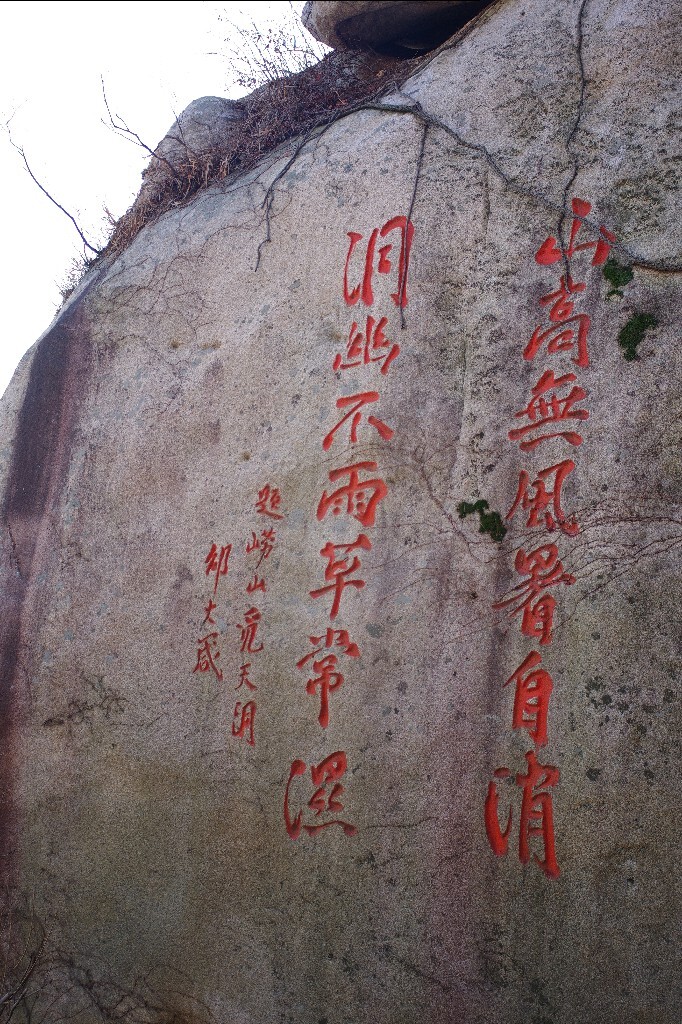 山高無風暑自消
洞幽不雨草常濕
題嶗山覓天洞
邹大箴